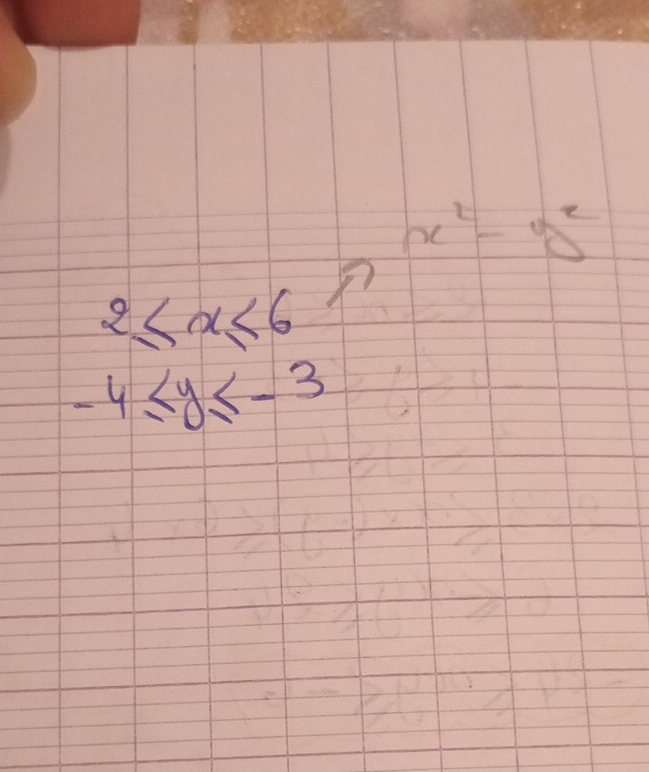 x² - y²
2 ≤ x ≤ 6 ↗
-4 ≤ y ≤ -3